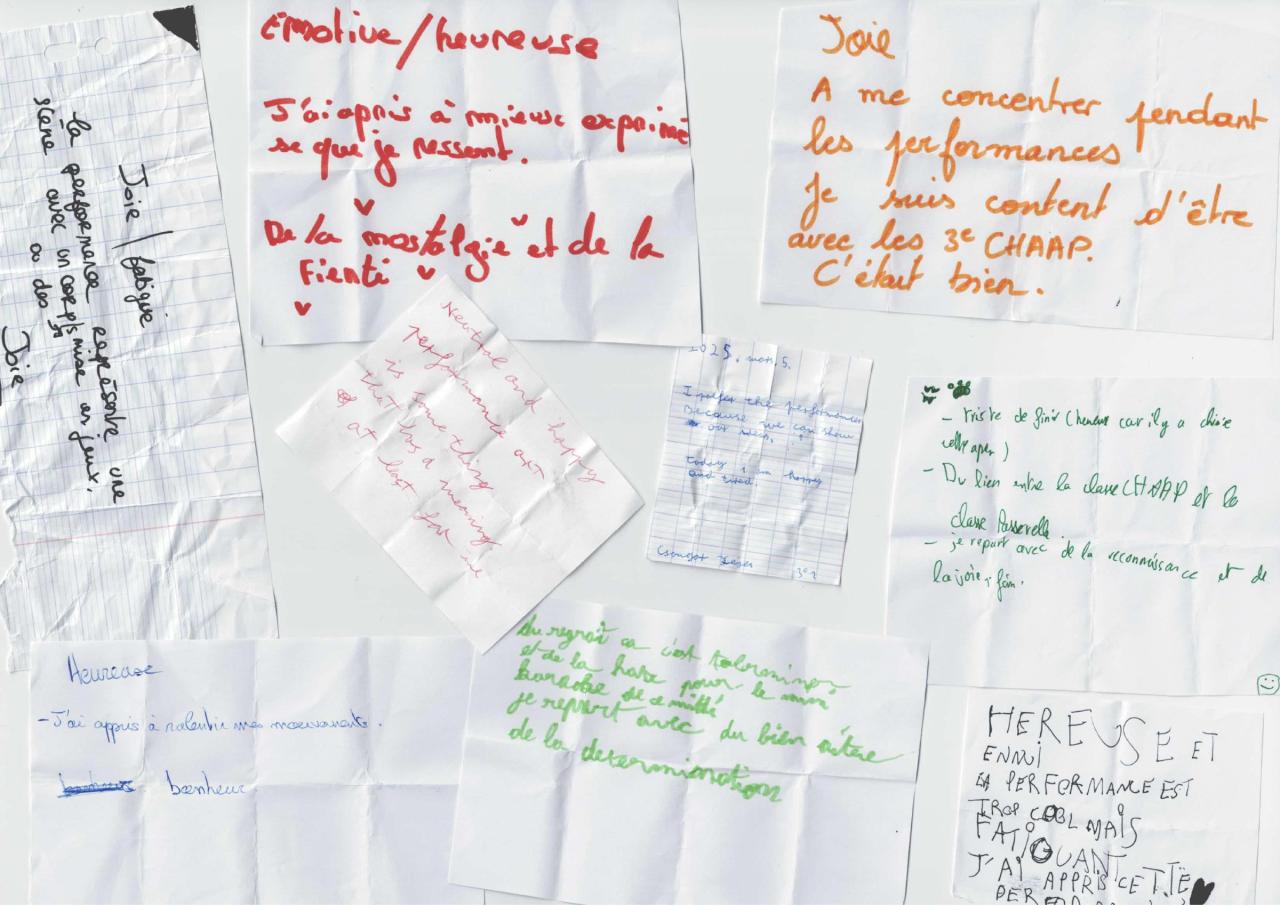 Joie / fatigue
la performance représente une
scène avec un corps mise en jeux.
ou des
Joie
émotive/heureuse
J'ai appris à mieux exprimé
se que je ressent.
De la nostalgie et de la
Fierté
Joie
A me concentrer pendant
les performances
Je suis content d'être
avec les 3e CHAAP.
C'était bien.
Neutral and happy
performance art
is something
that has a meaning
at least for me
2025. mars. 5.
I prefer the performances
Because we can show
our
today i'm happy
and tired.
- triste de finir (heureux car il y a
)
- Du lien entre la classe CHAAP et la
classe Passerelle.
- je repart avec de la reconnaissance et de
la joie, faim.
Heureuse
- J'ai appris à ralentir mes mouvements.
bonheur
du regrait ca c'est
et de la hate pour le mini
karaoke de
je repart avec du bien aitere
de la determination
HEREUSE ET
ENNUI
LA PERFORMANCE EST
TROP COOL MAIS
FATIGUANT
J'AI APPRIS CETTË